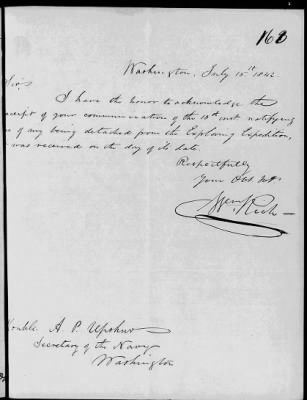 168
Washington, July 15th 1842
Sir,
I have the honor to acknowledge the
eceipt of your communication of the 10th inst notifying
e of my being detached from the Exploring Expedition,
was received on the day of its date.
Respectfully
Your Obt. Svt.
Wm Rich
onble A. P. Upshur
Secretary of the Navy
Washington